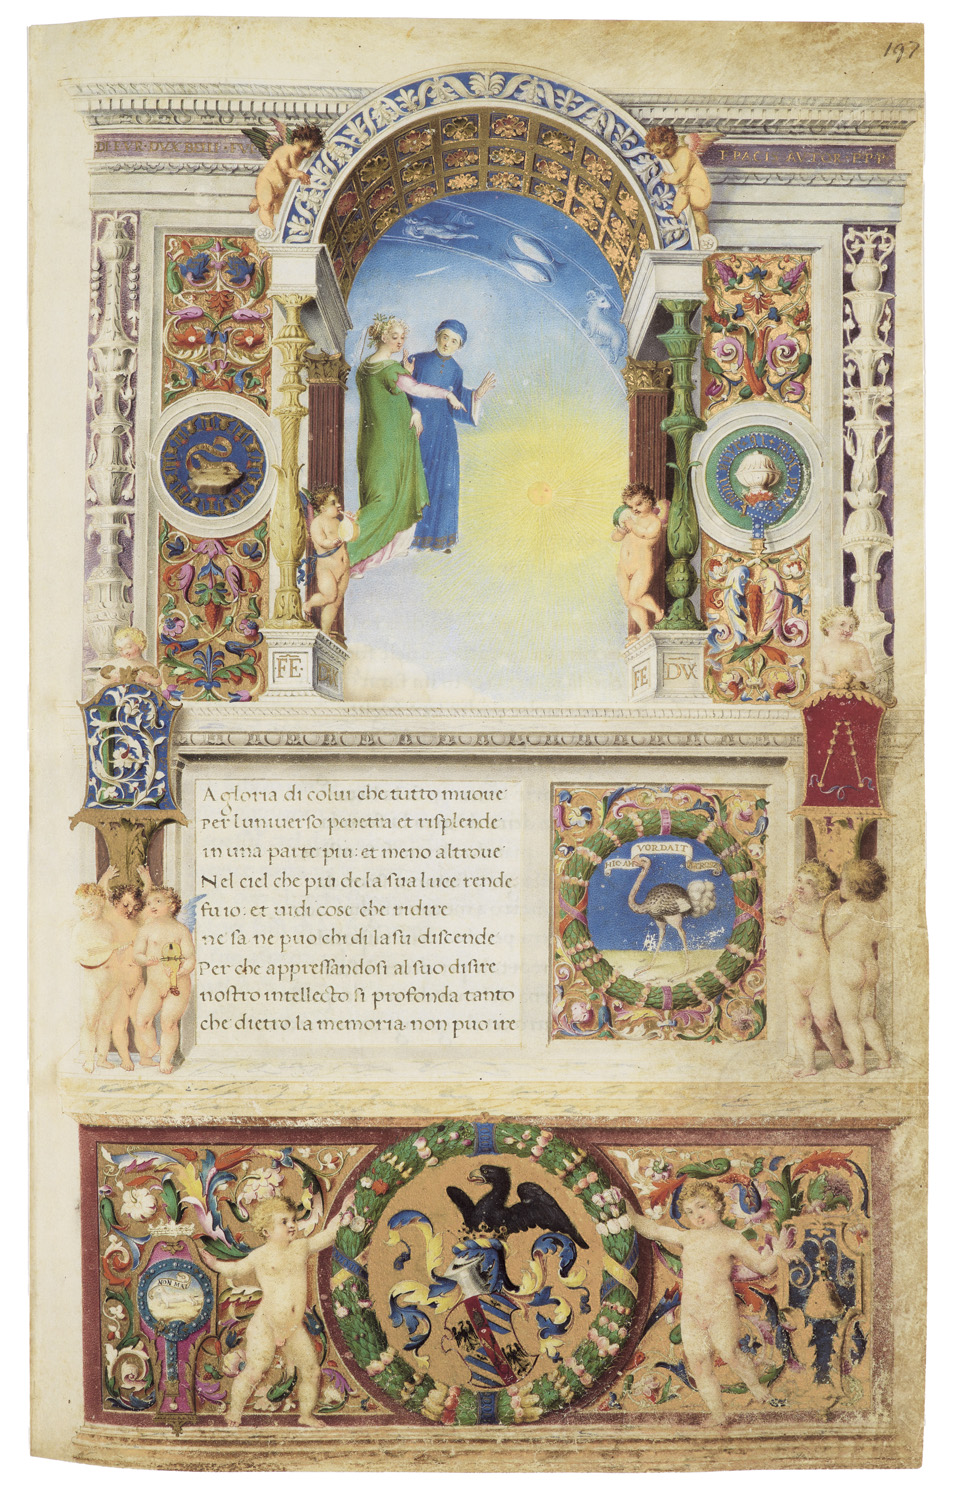 197
DE.EVR.DVX.BISTI.FV
E PACI AVTOR.E.P.P
FE
FE
DVX
A gloria di colui che tutto muoue
Per luniuerso penetra et risplende
in una parte piu: et meno altroue
Nel ciel che piu de la sua luce rende
fu io: et uidi cose che ridire
ne sa ne puo chi di lasu discende
Per che appressandosi al suo disire
nostro intellecto si profonda tanto
che dietro la memoria non puo ire
VORDAIT
HIC AN
GROSEN
NON MAI